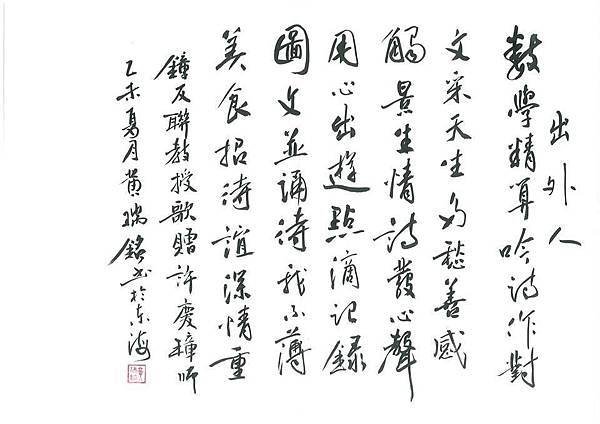 出外人
數學精算吟詩作對
文采天生多愁善感
觸景生情詩發心聲
用心出遊點滴記錄
圖文並誦待我不薄
美食招待誼深情重
鐘友聯教授歌贈許慶璋師
乙未夏月黃瑞銘書於東海